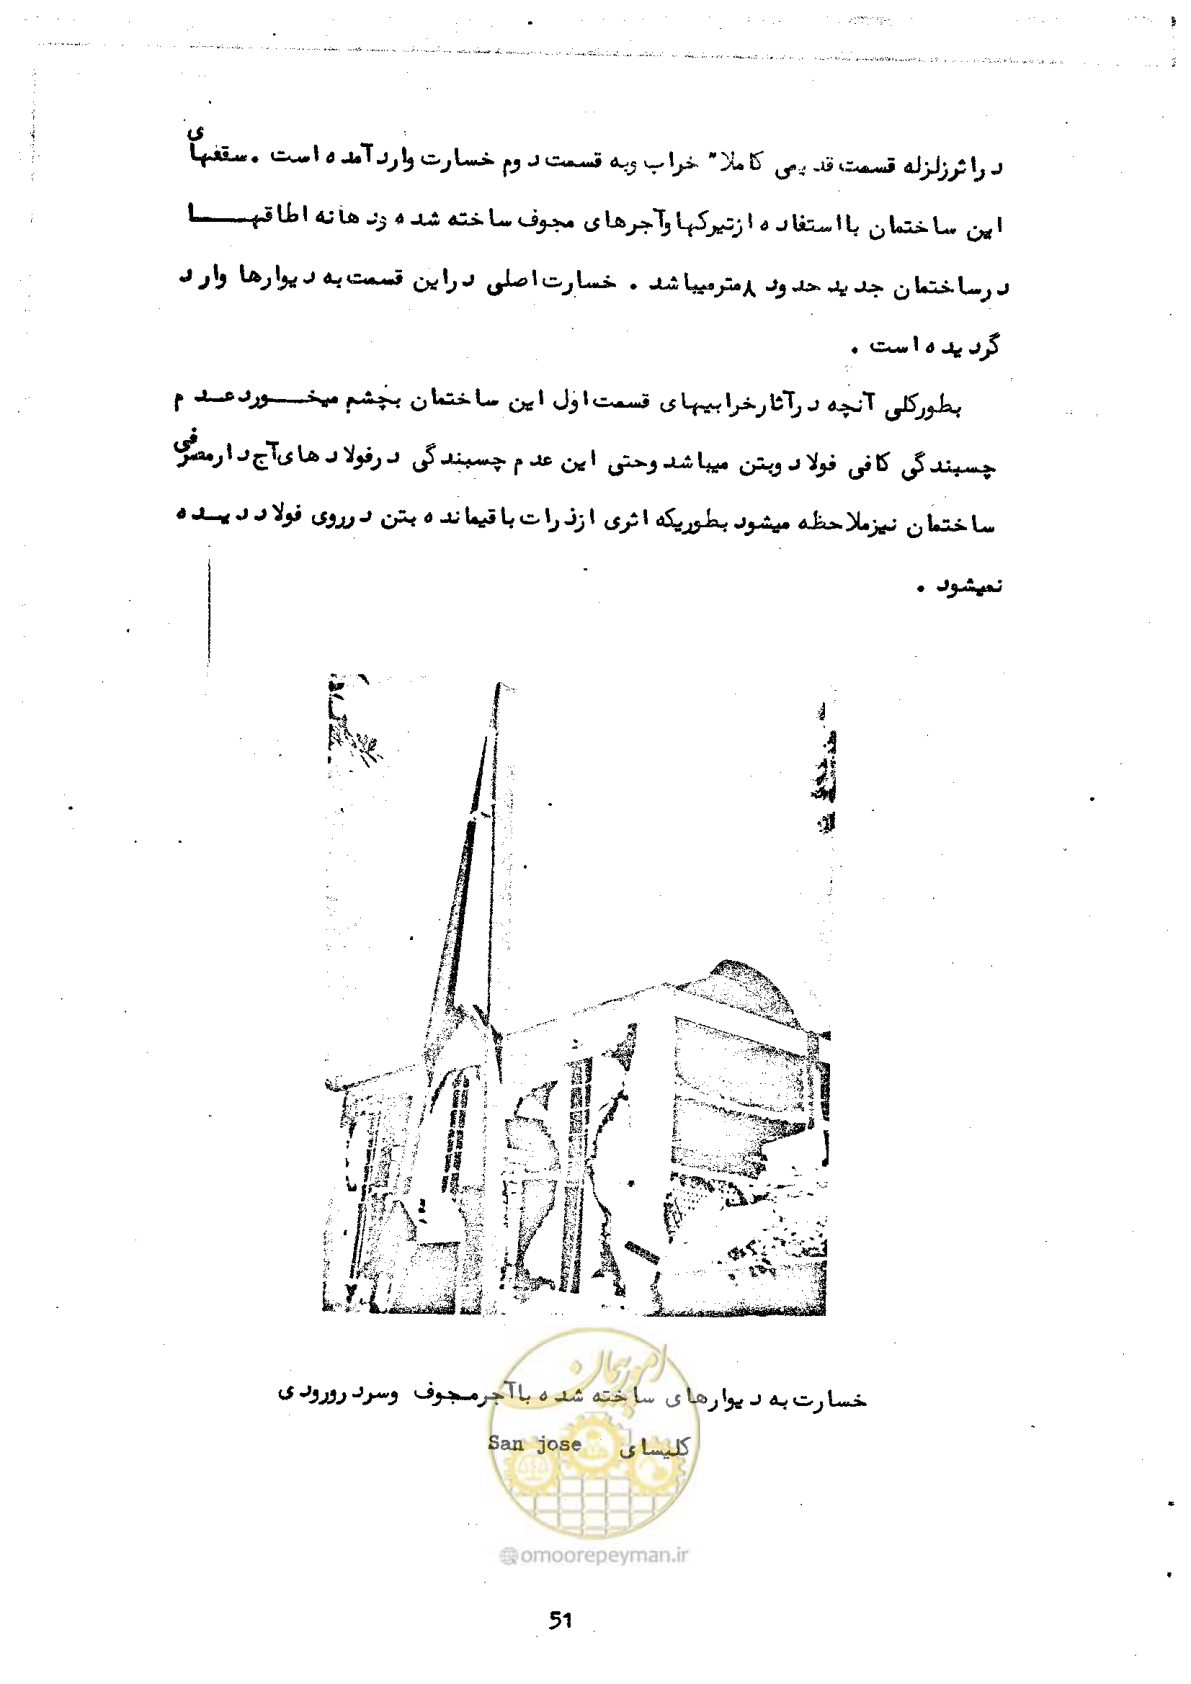 دراثرزلزله قسمت قدیمی کاملا" خراب وبه قسمت دوم خسارت واردآمده است . سقفهای
این ساختمان بااستفاده ازتیرکهاوآجرهای مجوف ساخته شده ودهانه اطاقهـــا
درساختمان جدیدحدود ۸مترمیباشد . خسارت اصلی دراین قسمت به دیوارها وارد
گردیده است .
بطورکلی آنچه درآثارخرابیهای قسمت اول این ساختمان بچشم میخـــوردعدم
چسبندگی کافی فولاد وبتن میباشد وحتی این عدم چسبندگی درفولادهای آج دارمصرفی
ساختمان نیزملاحظه میشود بطوریکه اثری ازذرات باقیمانده بتن درروی فولاددیـده
نمیشود .
خسارت به دیوارهای ساخته شده باآجرمجوف وسردرورودی
کلیسای San jose
امور پیمان
@omoorepeyman.ir
51